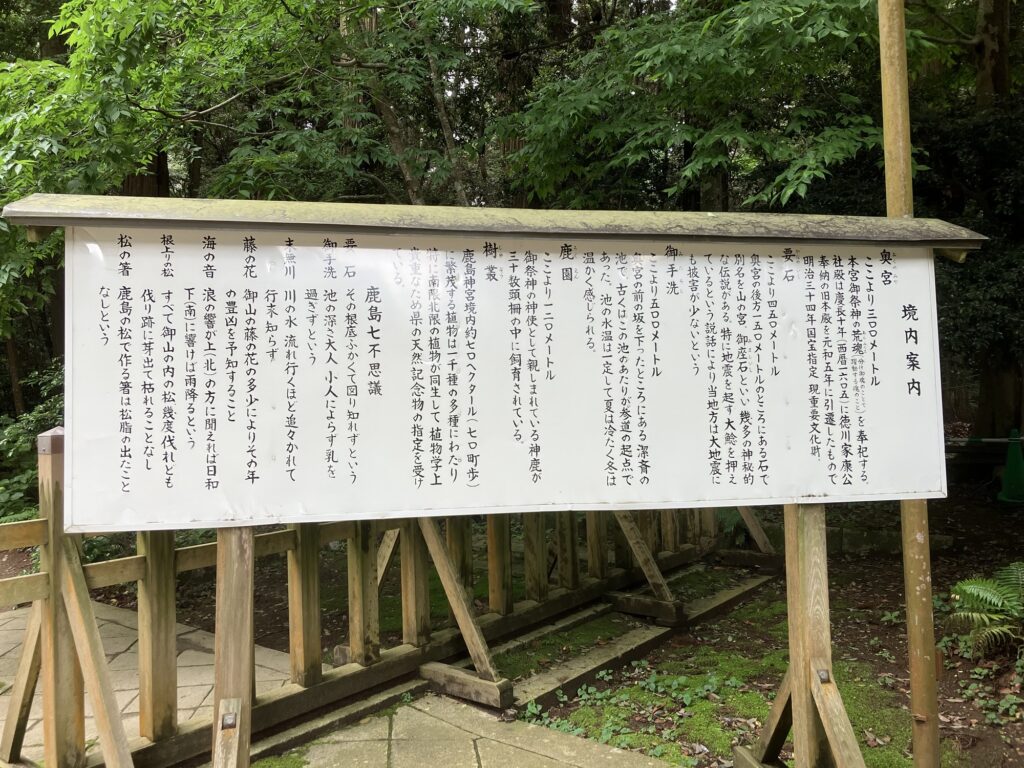 境内案内
奥宮
ここより三〇〇メートル
本宮御祭神の荒魂を奉祀する。
社殿は慶長十年(西暦一六〇五)に徳川家康公
奉納の旧本殿を元和五年に引遷したもので
明治三十四年国宝指定、現重要文化財。
要石
ここより四五〇メートル
奥宮の後方一五〇メートルのところにある石で
別名を山の宮、御座石といい幾多の神秘的
な伝説がある。特に地震を起す大鯰を押え
ているという説話により当地方は大地震に
も披害が少ないという。
御手洗
ここより五〇〇メートル
奥宮の前の坂を下ったところにある潔斎の
池で、古くはこの池のあたりが参道の起点で
あった。池の水温は一定して夏は冷たく冬は
温かく感じられる。
鹿園
ここより一二〇メートル
御祭神の神使として親しまれている神鹿が
三十数頭柵の中に飼育されている。
樹叢
鹿島神宮境内約七〇ヘクタール(七〇町歩)
に繁茂する植物は一千種の多種にわたり
特に南限北限の植物が同生して植物学上
貴重なため県の天然記念物の指定を受け
ている。
鹿島七不思議
要石 その根底ふかくて図り知れずという
御手洗 池の深さ大人小人によらず乳を
過ぎずという
末無川 川の水流れ行くほど追々かれて
行末知らず
藤の花 御山の藤の花の多少によりその年
の豊凶を予知すること
海の音 浪の響が上(北)の方に聞えれば日和
下(南)に響けば雨降るという
根上り松 すべて御山の内の松幾度伐れども
伐り跡に芽出て枯れることなし
松の箸 鹿島の松で作る箸は松脂の出たこと
なしという